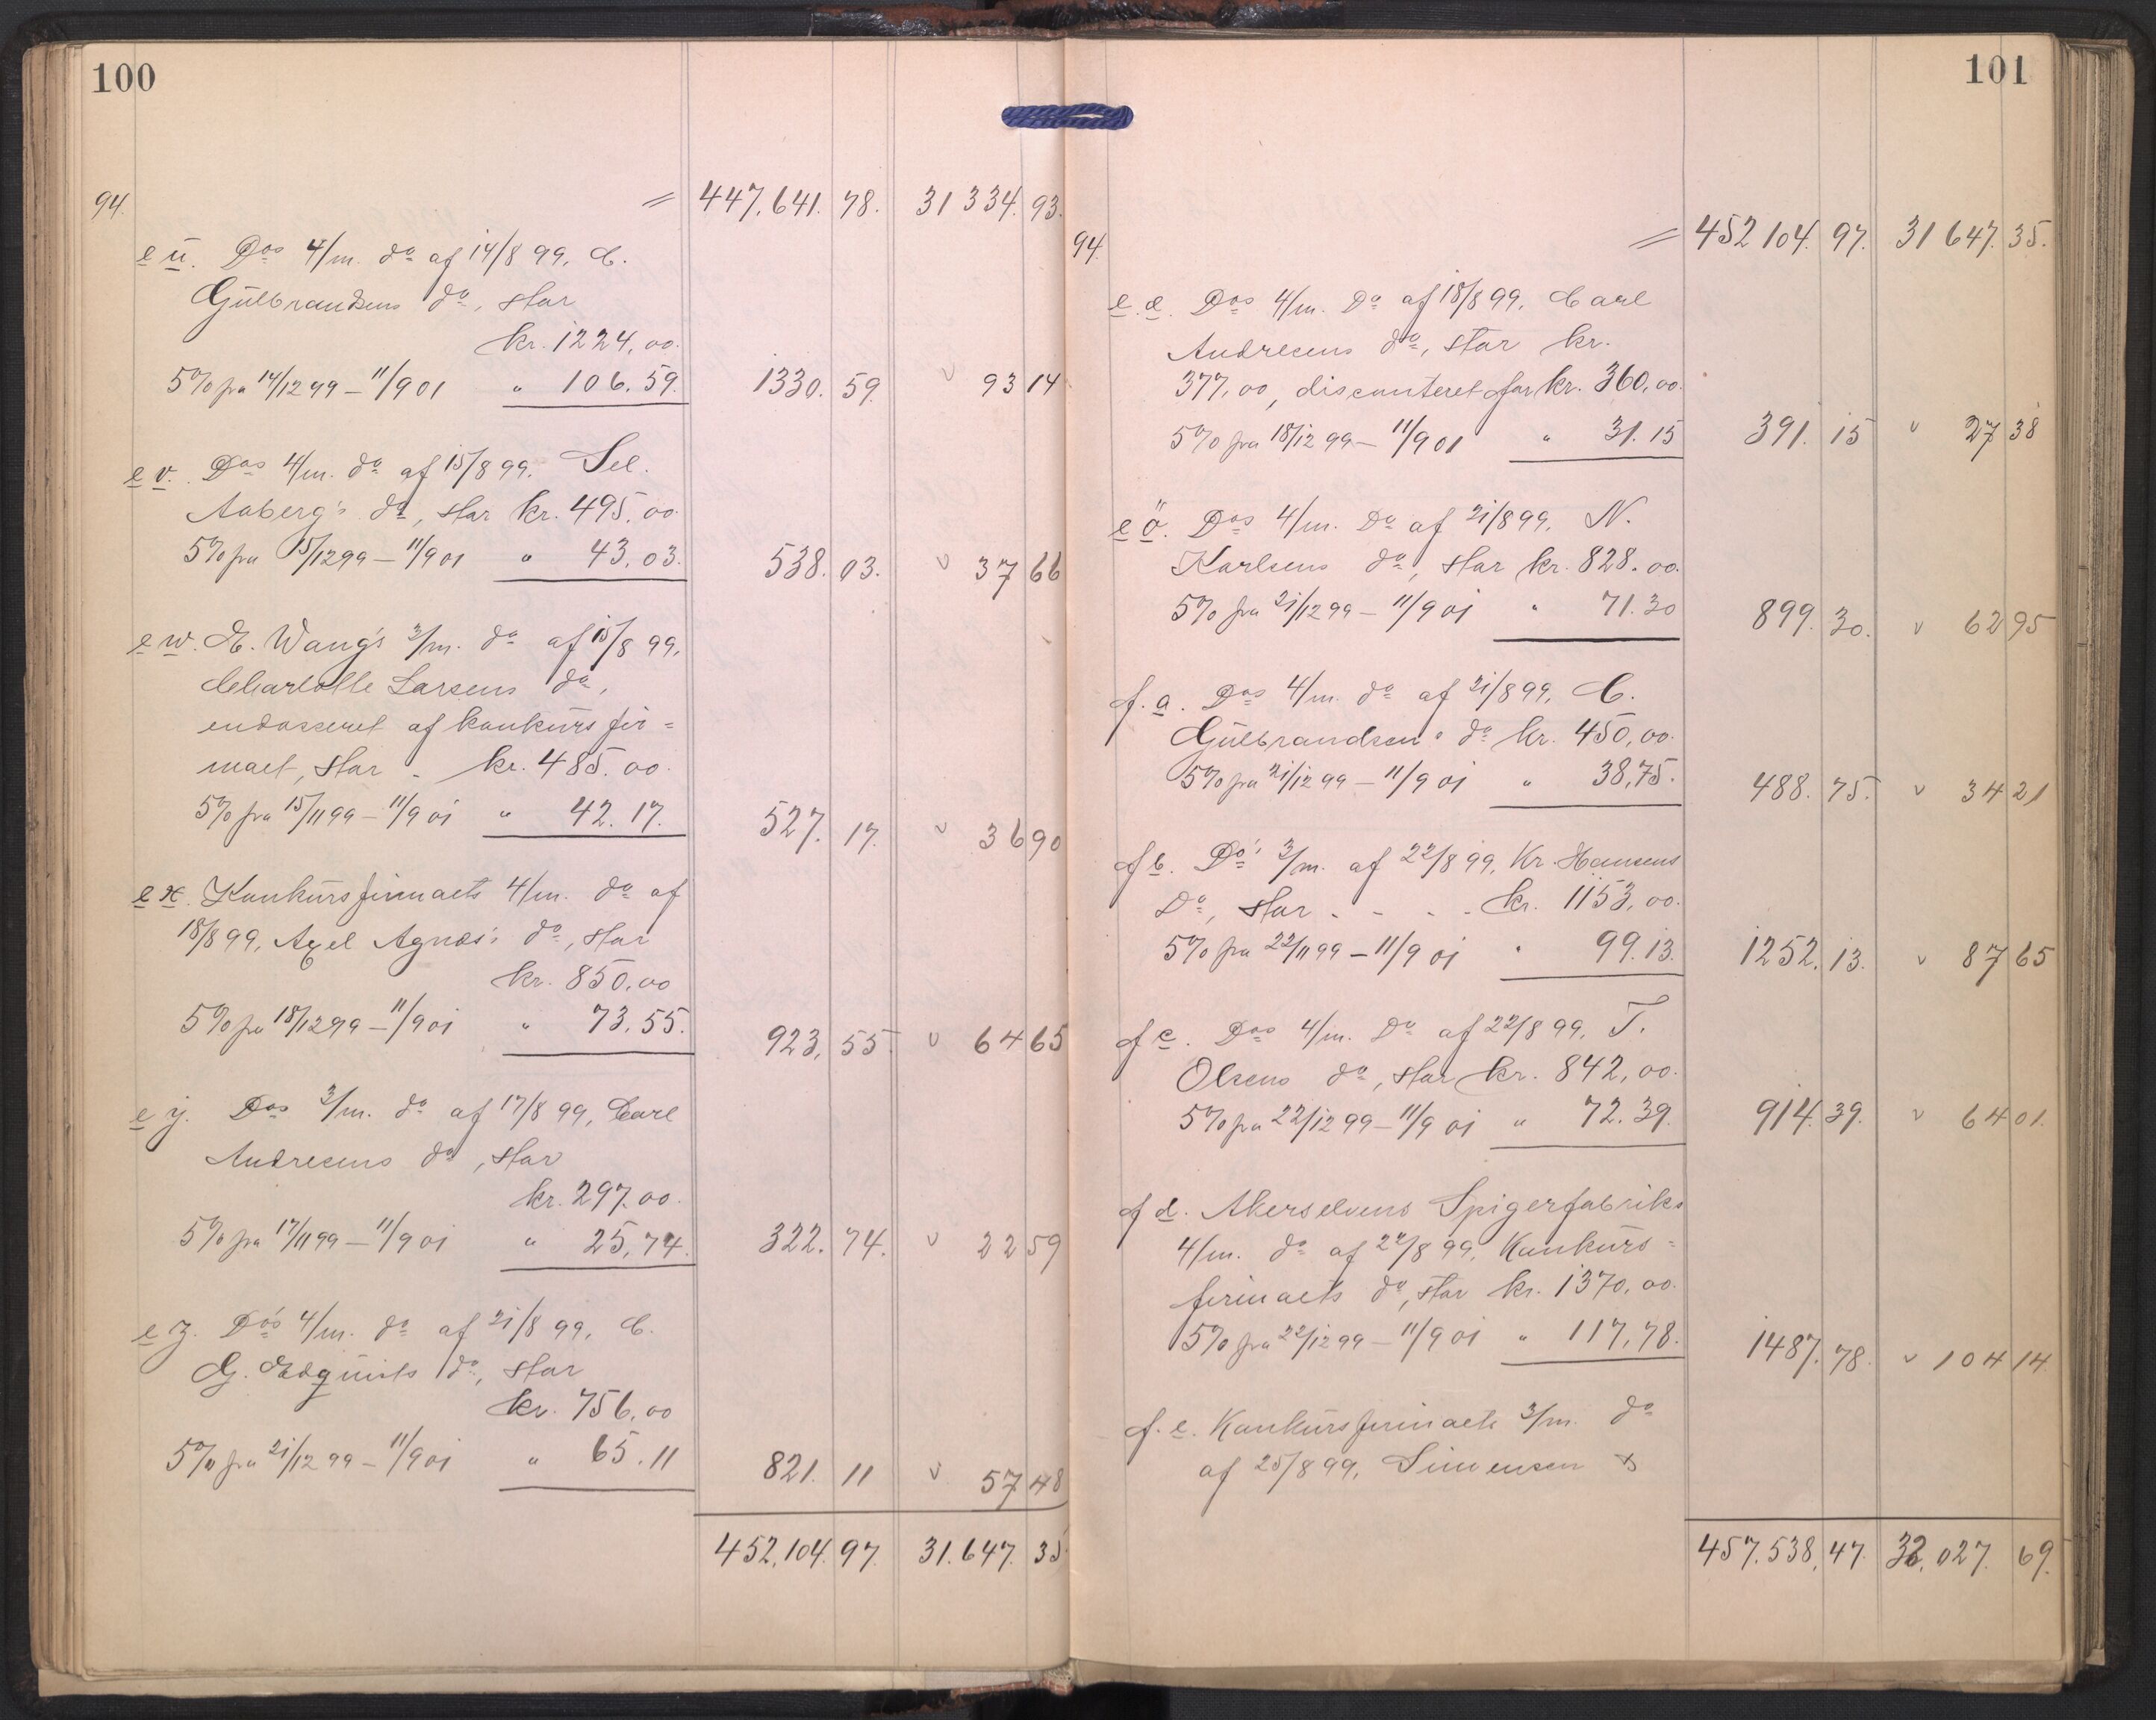 100
94. = 447.641. 78. 31 334. 93.
e ü. Dos 4/m. do af 14/8 99, C.
Gülbrandsens do, stor
kr. 1224,00.
5% fra 14/12 99 – 11/9 01 " 106.59. 1330. 59. v 93 14
e v. Dos 4/m. do af 15/8 99. Sel.
Aaberg's do, stor kr. 495,00.
5% fra 15/12 99 – 11/9 01 " 43,03. 538. 03. v 37 66
e w. E. Wang's 3/m. do af 15/8 99,
Charlotte Larsens do,
endosseret af konkürsfir=
maet, stor . kr. 485.00.
5% fra 15/11 99 – 11/9 01 " 42.17. 527. 17. v 36 90
e x. Konkürsfirmaets 4/m. do af
18/8 99, Axel Agnæs's do, stor
kr. 850,00
5% fra 18/12 99 – 11/9 01 " 73.55. 923, 55. v 64 65
e y. Dos 3/m. do af 17/8 99, Carl
Andresens do, stor
kr. 297.00.
5% fra 17/11 99 – 11/9 01 " 25,74. 322. 74. v 22 59
e z. Do's 4/m. do af 21/8 99, C.
G. Edqüists do, stor
kr. 756,00
5% fra 21/12 99 – 11/9 01 " 65.11 821. 11 v 57 48
452,104. 97. 31.647. 35.
101
94. = 452 104. 97. 31 647. 35.
e. æ. Dos 4/m. Do af 18/8 99, Carl
Andresens do, stor kr.
377,00, disconteret for kr. 360,00.
5% fra 18/12 99 – 11/9 01 " 31.15 391. 15 v 27 38
e ö. Dos 4/m. Do af 21/8 99, N.
Karlsens do, stor kr. 828.00.
5% fra 21/12 99 – 11/9 01 " 71.30 899. 30. v 62 95
f. a. Dos 4/m. do af 21/8 99, C.
Gülbrandsen's do kr. 450,00.
5% fra 21/12 99 – 11/9 01 " 38,75. 488. 75. v 34 21
f b. Do's 3/m. af 22/8 99, Kr. Hansens
Do, stor . - . . kr. 1153,00.
5% fra 22/11 99 – 11/9 01 " 99.13. 1252. 13. v 87 65
f c. Dos 4/m. Do af 22/8 99, T.
Olsens do, stor kr. 842,00.
5% fra 22/12 99 – 11/9 01 " 72.39. 914. 39. v 64 01.
f d. Akerselvens Spigerfabriks
4/m. do af 22/8 99, Konkürs=
firmaets do, stor kr. 1370,00.
5% fra 22/12 99 – 11/9 01 " 117,78. 1487. 78. v 104 14.
f. e. Konkürsfirmaets 3/m. do
af 25/8 99, Simensen &
457.538, 47. 32.027. 69.